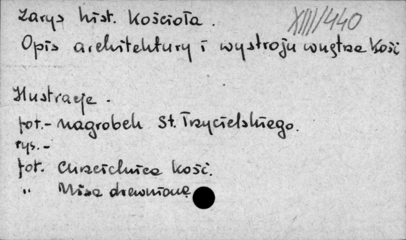 Zarys hist. Kościoła.
XIII/440
Opis architektury i wystroju wnętrza Kość
Ilustracje.
fot. - nagrobek St. Trzycielskiego.
rys. -
fot. Chrzcielnica Kość.
" Misa drewniana